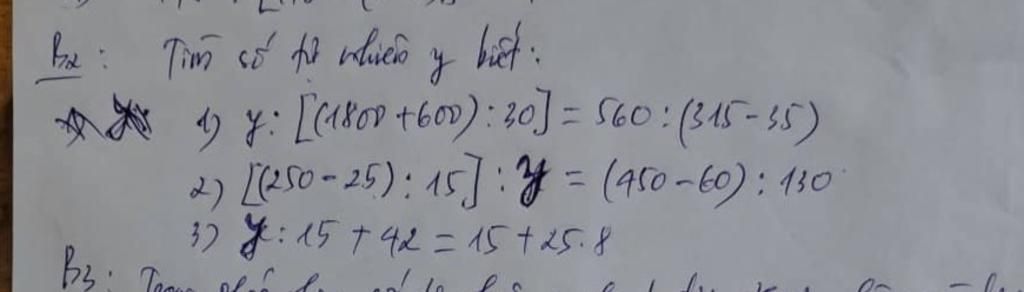 B2: Tìm số tự nhiên y biết:
1) y: [(1800+600):30] = 560:(315-35)
2) [(250-25):15]:y = (450-60):130
3) y:15+42=15+25.8
B3: